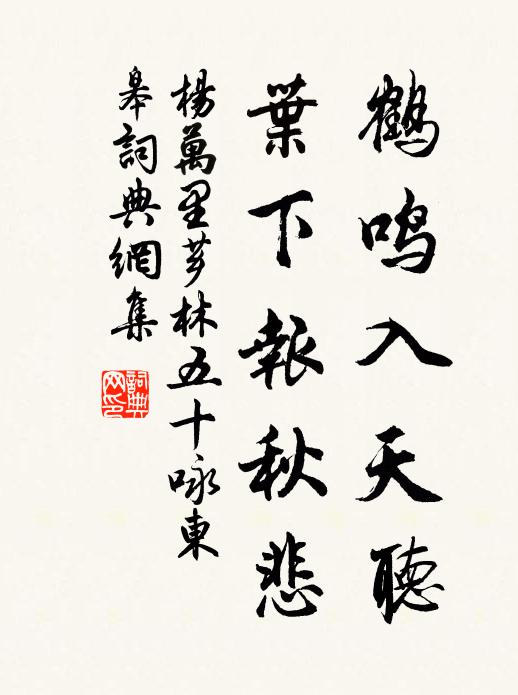 鶴鳴入天聽
葉下報秋悲
楊萬里芗林五十咏東
皋詞典網集
詞典
网印